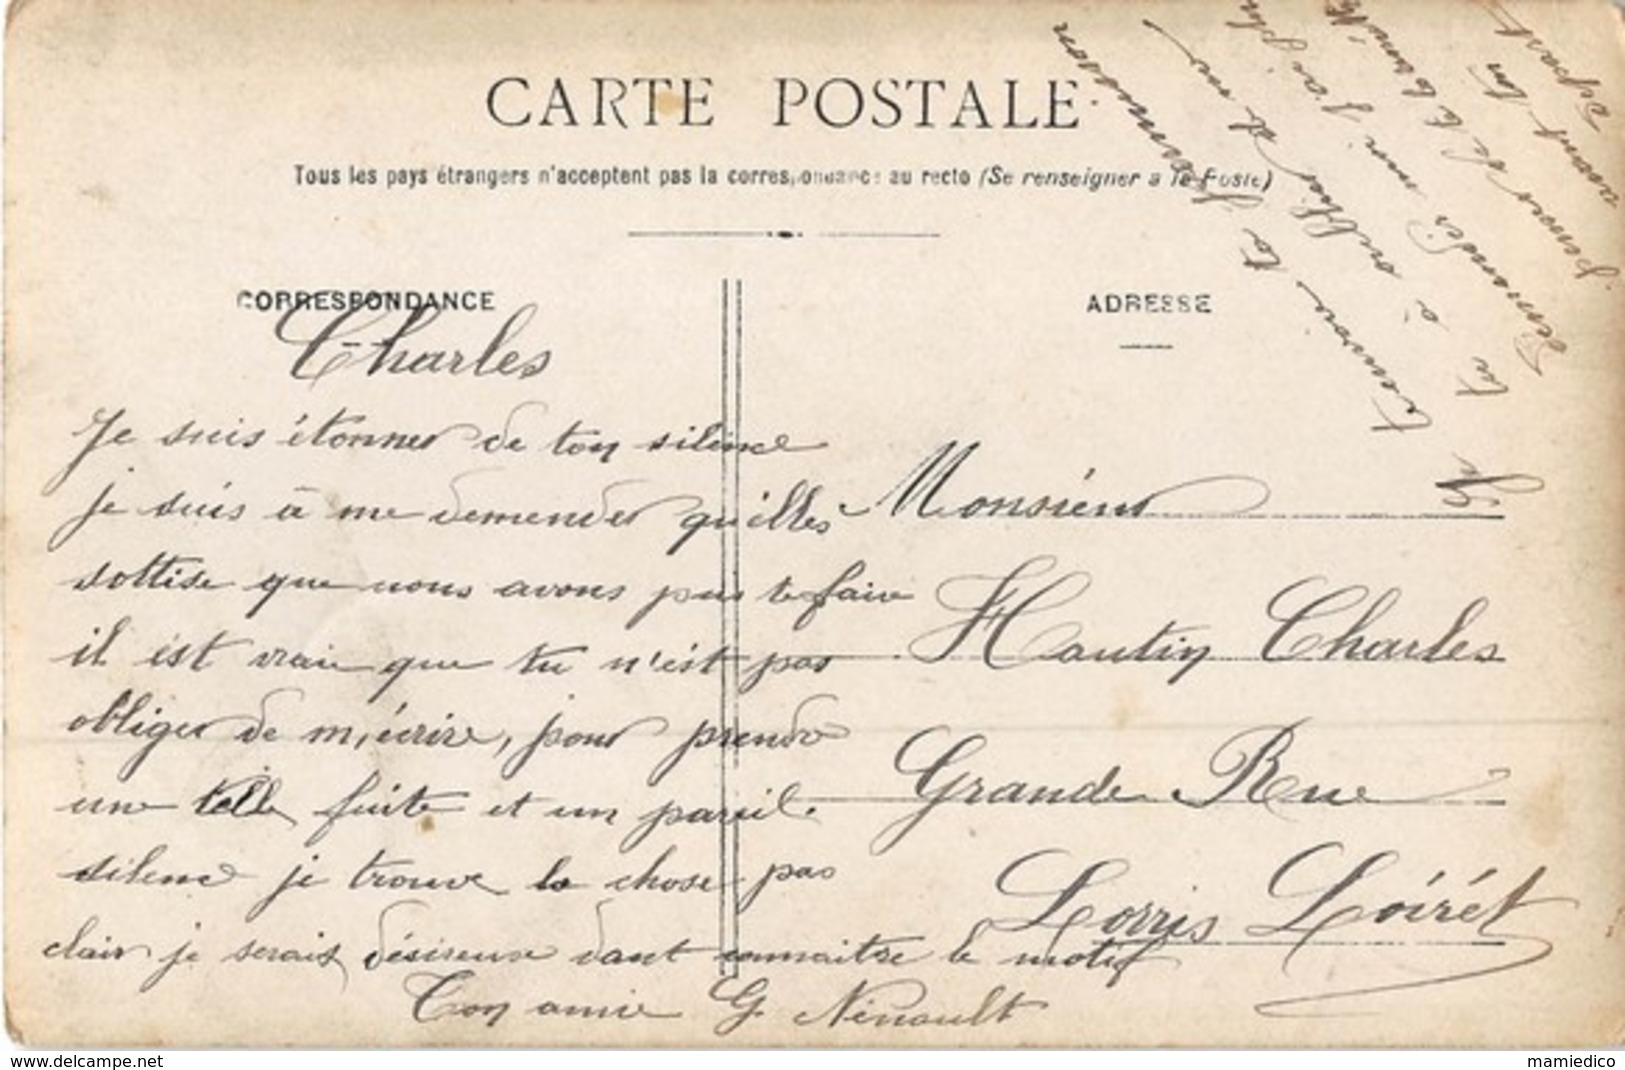 CARTE POSTALE
Tous les pays étrangers n'acceptent pas la correspondance au recto (Se renseigner à la Poste)
CORRESPONDANCE
Charles
Je suis étonner de ton silence
je suis à me demender qu'illes
sottise que nous avons pus te faire
il est vraie que tu n'est pas
obliger de m'écrire, pour prendre
une telle fuite et un pareil
silence je trouve la chose pas
clair je serais désireuse dant connaitre le motif
Ton amie G. Ninault
ADRESSE
Monsieur
Hautin Charles
Grande Rue
Lorris Loirét
tu à oublié de me
demander
avant ton
départ
www.delcampe.net
mamiedico